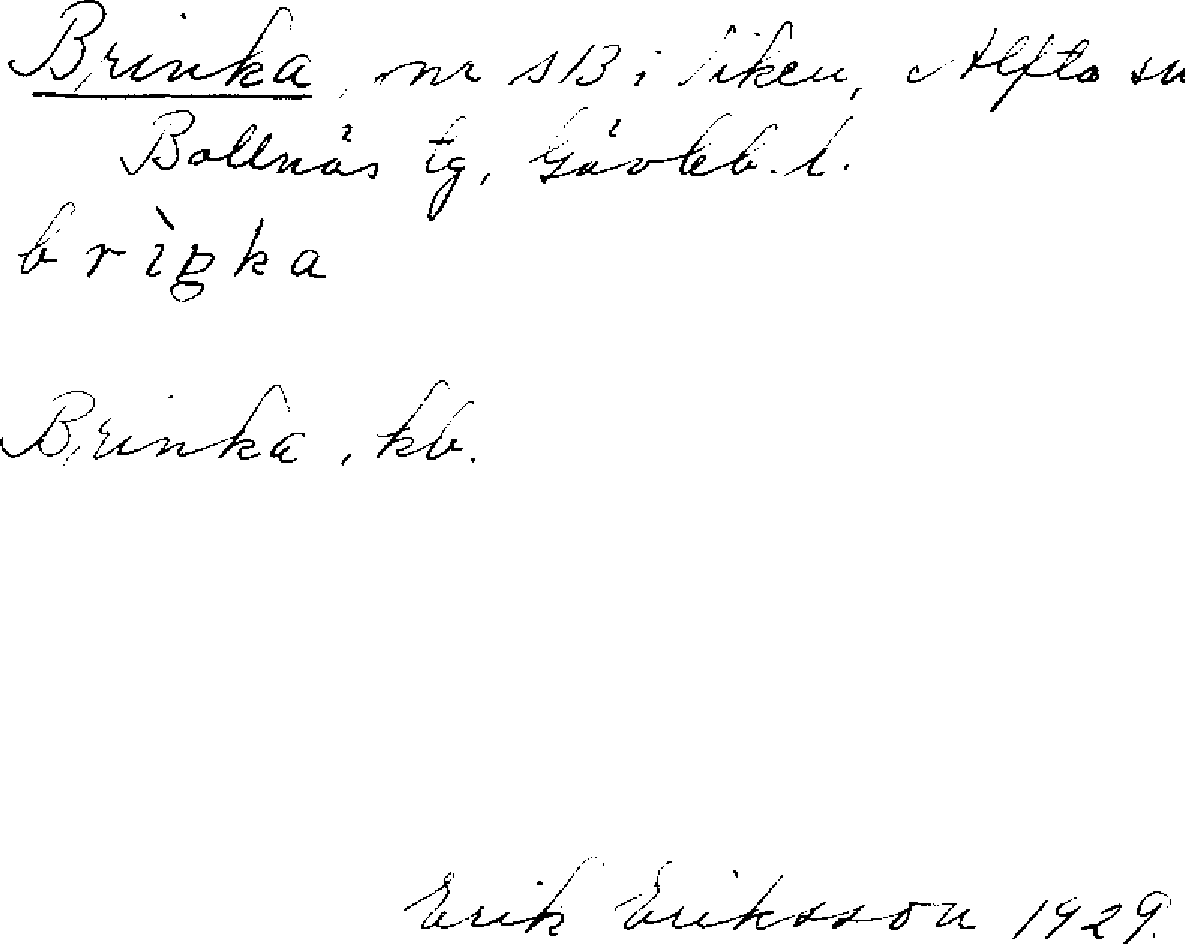 Brinka, nr 1B i Viken, Alfta sn
Bollnäs tg, Gävleb. l.
brìŋka
Brinka, kb.
Erik Eriksson 1929.